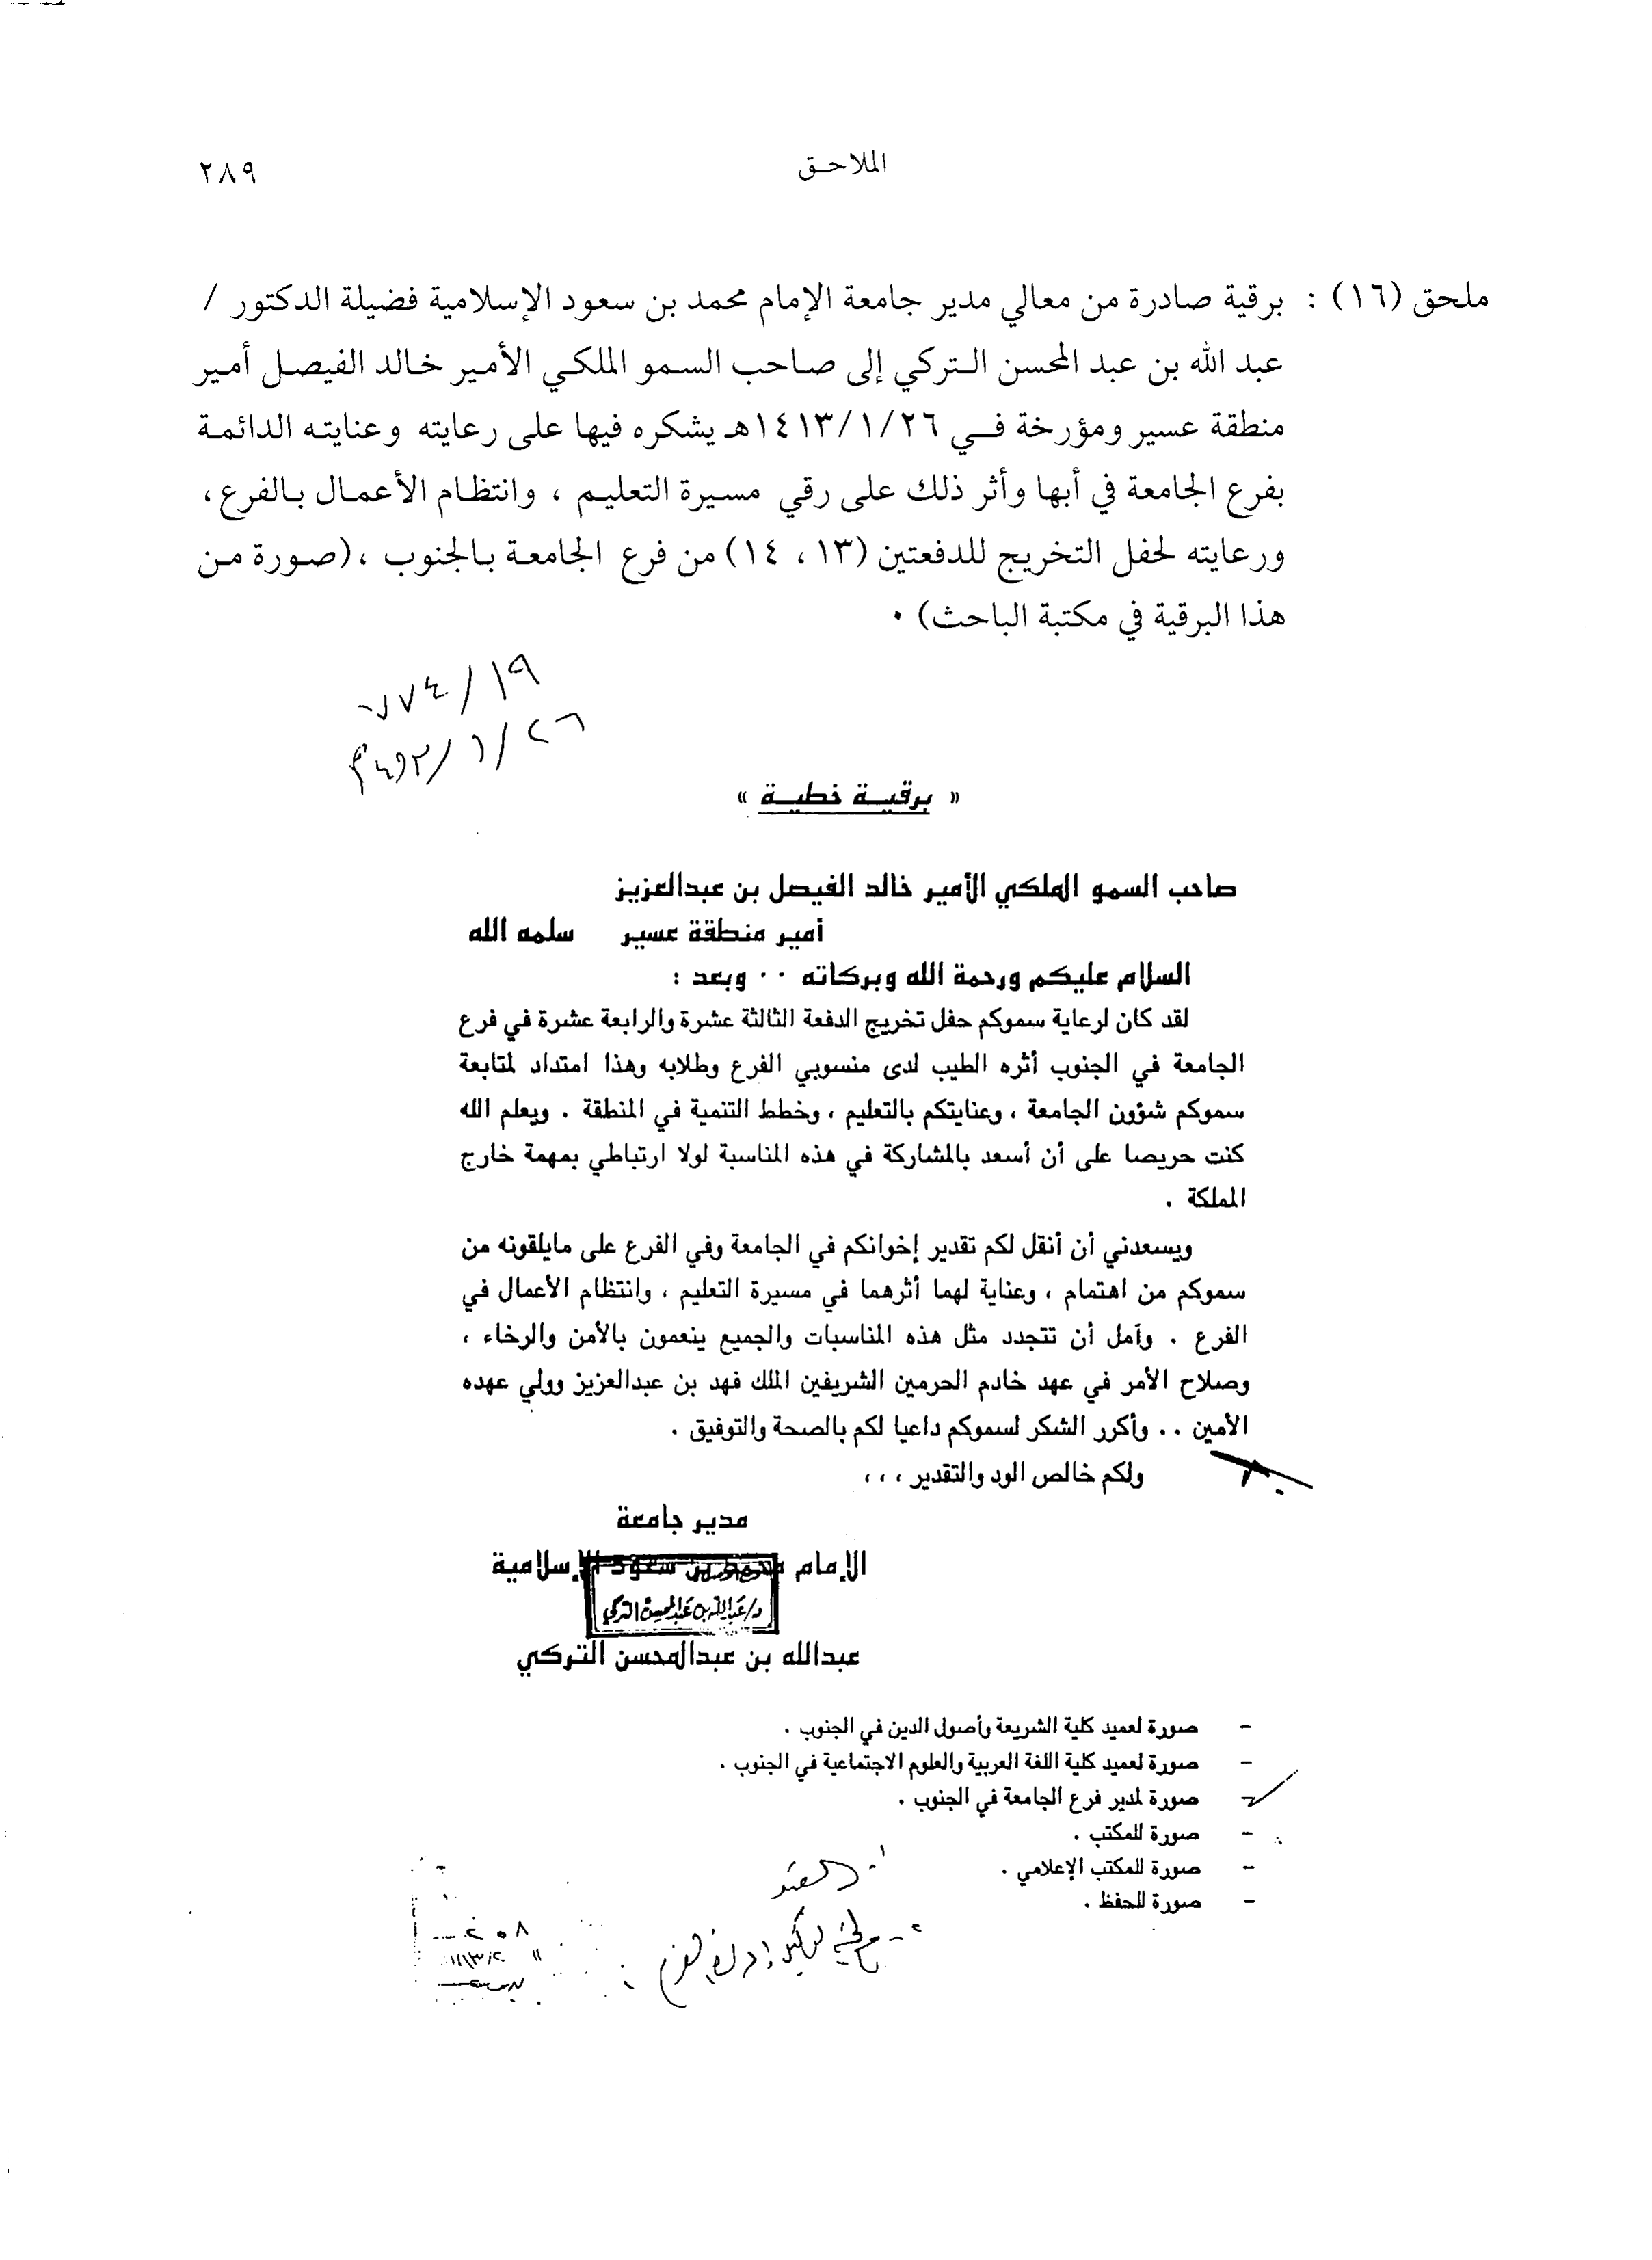 الملاحق
٢٨٩
ملحق (١٦) : برقية صادرة من معالي مدير جامعة الإمام محمد بن سعود الإسلامية فضيلة الدكتور /
عبد الله بن عبد المحسن التركي إلى صاحب السمو الملكي الأمير خالد الفيصل أمير
منطقة عسير ومؤرخة في ١٤١٣/١/٢٦هـ يشكره فيها على رعايته وعنايته الدائمة
بفرع الجامعة في أبها وأثر ذلك على رقي مسيرة التعليم ، وانتظام الأعمال بالفرع ،
ورعايته لحفل التخريج للدفعتين (١٣ ، ١٤) من فرع الجامعة بالجنوب ، (صورة من
هذا البرقية في مكتبة الباحث) .
« برقية خطية »
صاحب السمو الملكي الأمير خالد الفيصل بن عبدالعزيز
أمير منطقة عسير سلمه الله
السلام عليكم ورحمة الله وبركاته .. وبعد :
لقد كان لرعاية سموكم حفل تخريج الدفعة الثالثة عشرة والرابعة عشرة في فرع
الجامعة في الجنوب أثره الطيب لدى منسوبي الفرع وطلابه وهذا امتداد لمتابعة
سموكم شؤون الجامعة ، وعنايتكم بالتعليم ، وخطط التنمية في المنطقة . ويعلم الله
كنت حريصا على أن أسعد بالمشاركة في هذه المناسبة لولا ارتباطي بمهمة خارج
المملكة .
ويسعدني أن أنقل لكم تقدير إخوانكم في الجامعة وفي الفرع على مايلقونه من
سموكم من اهتمام ، وعناية لهما أثرهما في مسيرة التعليم ، وانتظام الأعمال في
الفرع . وآمل أن تتجدد مثل هذه المناسبات والجميع ينعمون بالأمن والرخاء ،
وصلاح الأمر في عهد خادم الحرمين الشريفين الملك فهد بن عبدالعزيز وولي عهده
الأمين .. وأكرر الشكر لسموكم داعيا لكم بالصحة والتوفيق .
ولكم خالص الود والتقدير ،،،
مدير جامعة
الإمام محمد بن سعود الإسلامية
د/عبدالله بن عبدالمحسن التركي
عبدالله بن عبدالمحسن التركي
- صورة لعميد كلية الشريعة وأصول الدين في الجنوب .
- صورة لعميد كلية اللغة العربية والعلوم الاجتماعية في الجنوب .
- صورة لمدير فرع الجامعة في الجنوب .
- صورة للمكتب .
- صورة للمكتب الإعلامي .
- صورة للحفظ .